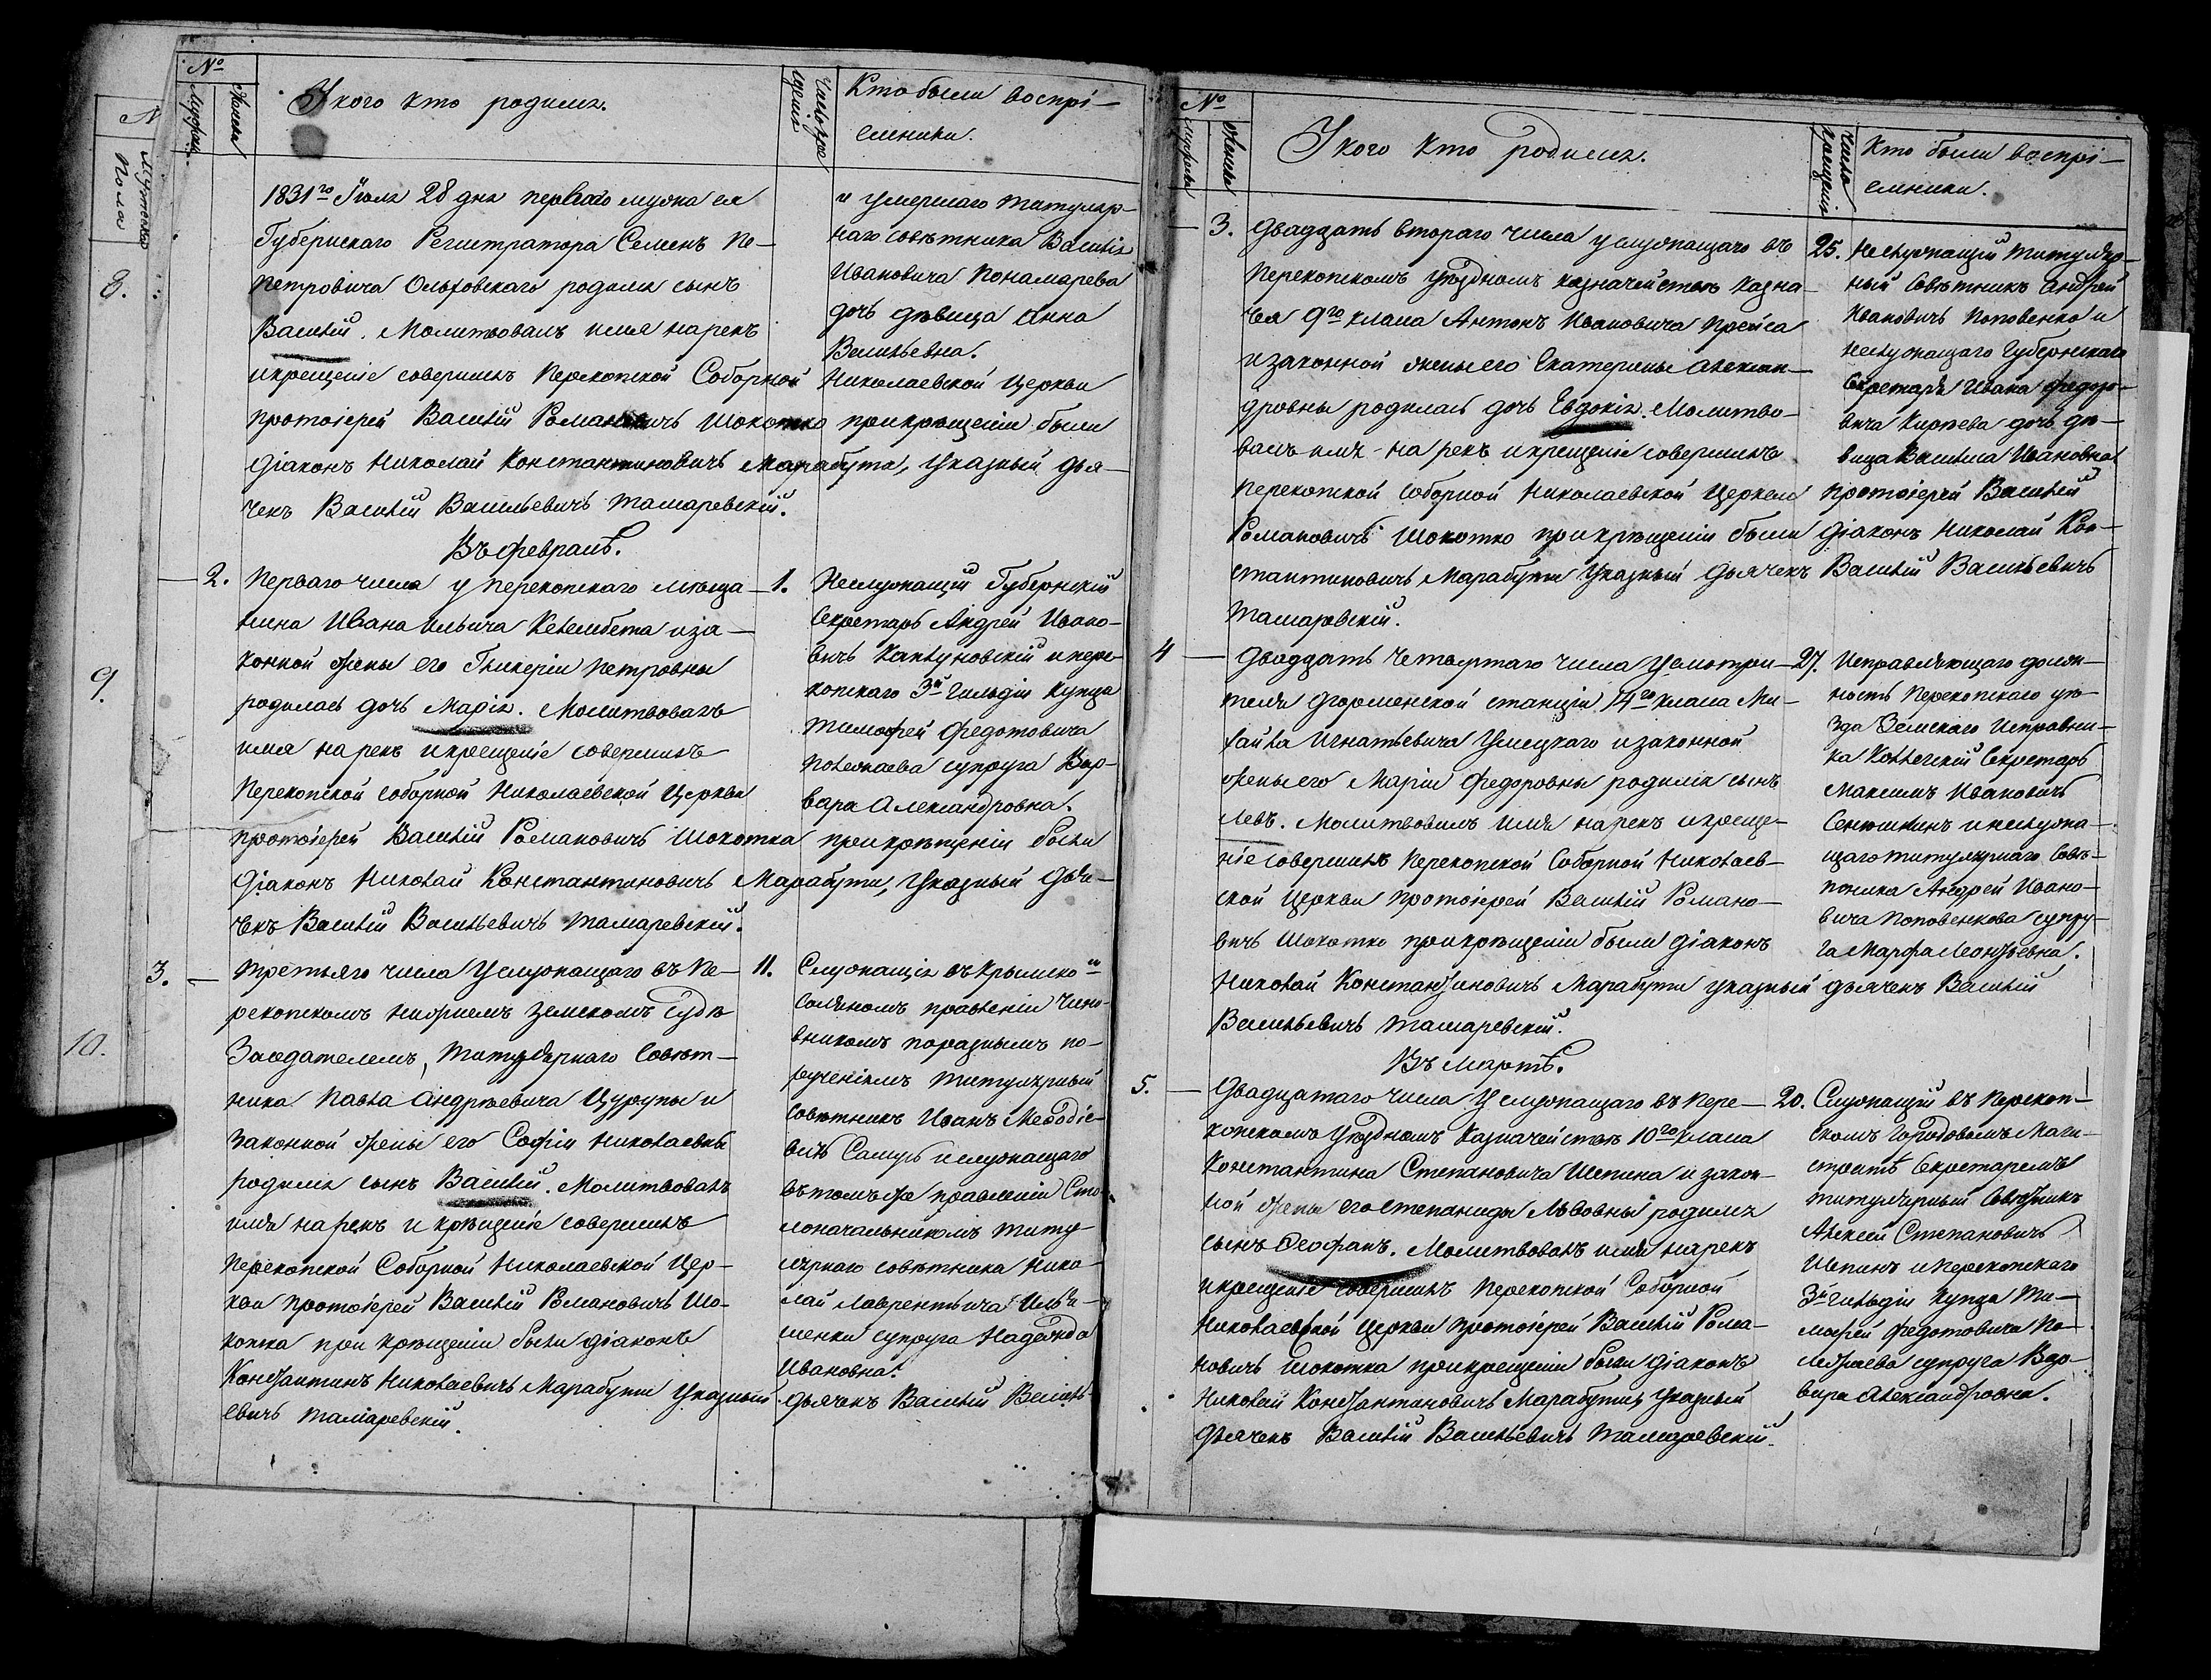 №
Мужеска
Женска
У кого кто родился.
Число крещения
Кто были воспрі-
емники.
1831го Іюля 28 дня перваго мужа ея
Губернскаго Регистратора Семенъ Пе-
Петровича Ольховскаго родился сынъ
Василій. Молитвовалъ имя нарекъ
и крещеніе совершилъ Перекопской Соборной Николаевской Церкви
Протоіерей Василій Романовичъ Шокотко при крещеніи были
Діаконъ Николай Константиновичъ Марабути, Указный Дья-
чекъ Василій Васильевичъ Тамаревскій.
и умершаго Титуляр-
наго Совѣтника Василія
Ивановича Понамарева
дочь дѣвица Анна
Васильевна.
Въ Февралѣ.
2. Перваго числа у Перекопскаго мѣща-
нина Ивана Ильича Кевлибета и за-
конной жены его Гликеріи Петровны
родилась дочь Марія. Молитвовалъ
имя нарекъ и крещеніе совершилъ
Перекопской Соборной Николаевской Церкви
Протоіерей Василій Романовичъ Шокотка при крѣщеніи были
Діаконъ Николай Константиновичъ Марабути, Указный Дья-
чекъ Василій Васильевичъ Тамаревскій.
1. Неслужащій Губернскій
Секретарь Андрей Ивано-
вичъ и пере-
копскаго 3й гильдіи купца
Тимофей Федотовича
супруга Вар-
вара Александровна.
3. Третьяго числа у служащаго въ Пе-
рекопскомъ Нижнемъ Земскомъ Судѣ
Заседателемъ, Титулярнаго Совѣт-
ника Павла Андрѣевича Цурупы и
законной жены его Софіи Николаевны
родился сынъ Василій. Молитвовалъ
имя нарекъ и крѣщеніе совершилъ
Перекопской Соборной Николаевской Цер-
кви Протоіерей Василій Романовичъ Шо-
котка при крѣщеніи были Діаконъ
Константинъ Николаевичъ Марабути Указный Дьячекъ Василій Василь-
евичъ Тамаревскій.
11. Служащій въ Крымско
Соляномъ правленіи Чино-
вникомъ по разнымъ по-
рученіямъ Титулярный
Совѣтникъ Иванъ Меѳодіе-
вичъ и служащаго
въ томъ же правленіи Сто-
лоначальникомъ Титу-
лярнаго Совѣтника Нико-
лай Лаврентьича Илья-
шенки супруга Надежда
Ивановна.
№
Мужеска
Женска
У кого кто родился.
Число крещенія
Кто были воспрі-
емники.
3. Двадцать втораго числа у служащаго въ
Перекопскомъ Уѣздномъ Казначействѣ Казна-
чея 9го класа Антонъ Ивановича Прейса
и законной жены его Екатерины Алексан-
дровны родилась дочь Евдокія. Молитво-
валъ имя нарекъ и крещеніе совершилъ
Перекопской Соборной Николаевской Церкви Протоіерей Василій
Романовичъ Шокотко при крѣщеніи были Діаконъ Николай Кон-
стантиновичъ Марабути Указный Дьячекъ Василій Васильевичъ
Тамаревскій.
25. Неслужащій Титуляр-
ный Совѣтникъ Андрей
Ивановичъ Поповенко и
неслужащаго Губернскаго
Секретаря Ивана Федоро-
вича дочь дѣ-
вица Василиса Ивановна
4 Двадцать четвертаго числа у Смотри-
теля станціи 14го класа Ми-
хайла Игнатьевича и законной
жены его Маріи Федоровны родился сынъ
Левъ. Молитвовалъ имя нарекъ и креще-
ніе совершилъ Перекопской Соборной Николаев-
ской Церкви Протоіерей Василій Романо-
вичъ Шокотко при крѣщеніи были Діаконъ
Николай Константиновичъ Марабути Указный Дьячекъ Василій
Васильевичъ Тамаревскій.
27. Исправляющаго долж-
ность Перекопскаго уѣ-
зда Земскаго Исправни-
ка Коллегскій Секретарь
Максимъ Ивановичъ
и неслужа-
щаго Титулярнаго Совѣ-
тника Андрей Ивано-
вича Поповенкова супру-
га Марфа Леонтьевна.
Въ Мартѣ.
5. Двадцатаго числа у служащаго въ Пере-
копскомъ Уѣздномъ Казначействѣ 10го класа
Константина Степановича Шепина и закон-
ной жены его Степаниды Львовны родился
сынъ Ѳеофанъ. Молитвовалъ имя нарекъ
и крещеніе совершилъ Перекопской Соборной
Николаевской Церкви Протоіерей Василій Рома-
новичъ Шокотка при крещеніи были Діаконъ
Николай Константиновичъ Марабути, Указный
Дьячекъ Василій Васильевичъ Тамаревскій.
20. Служащій въ Перекоп-
скомъ Городовомъ Маги-
стратѣ Секретаремъ
Титулярный Совѣтникъ
Алексей Степановичъ
Шепинъ и Перекопскаго
3й гильдіи купца Ти-
мофей Федотовича По-
супруга Вар-
вара Александровна.
Мужеска
Пола
8.
9.
10.